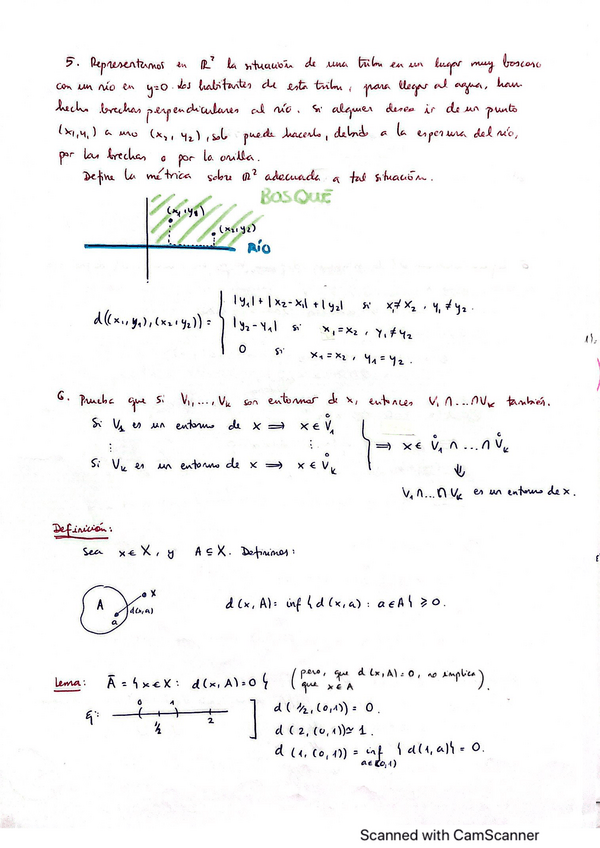 5. Representamos en ℝ² la situación de una tribu en un lugar muy boscoso
con un río en y=0. Los habitantes de esta tribu, para llegar al agua, han
hecho brechas perpendiculares al río. Si alguien desea ir de un punto
(x₁,y₁) a uno (x₂, y₂), solo puede hacerlo, debido a la espesura del río,
por las brechas o por la orilla.
Define la métrica sobre ℝ² adecuada a tal situación.
BOSQUE
(x₁,y₁)
(x₂,y₂)
RÍO
d((x₁,y₁),(x₂,y₂)) = { |y₁| + |x₂-x₁| + |y₂| si x₁≠x₂, y₁≠y₂.
|y₂-y₁| si x₁=x₂, y₁≠y₂
0 si x₁=x₂, y₁=y₂.
1).
6. Prueba que si V₁,..., Vₖ son entornos de x, entonces V₁∩...∩Vₖ también.
Si V₁ es un entorno de x ⟹ x ∈ V̊₁
⋮ ⋮ } ⟹ x ∈ V̊₁ ∩ ... ∩ V̊ₖ
Si Vₖ es un entorno de x ⟹ x ∈ V̊ₖ ⇓
V₁∩...∩Vₖ es un entorno de x.
Definición:
Sea x ∈ X, y A ⊆ X. Definimos:
A a x d(x,a) d(x,A) = inf { d(x,a) : a∈A } ≥ 0.
Lema: Ā = { x∈X : d(x,A)=0 } (pero, que d(x,A)=0, no implica que x∈A).
Ej: 0 1/2 1 2 ] d(1/2,(0,1)) = 0.
d(2,(0,1)) = 1.
d(1,(0,1)) = inf a∈(0,1) { d(1,a) } = 0.
Scanned with CamScanner